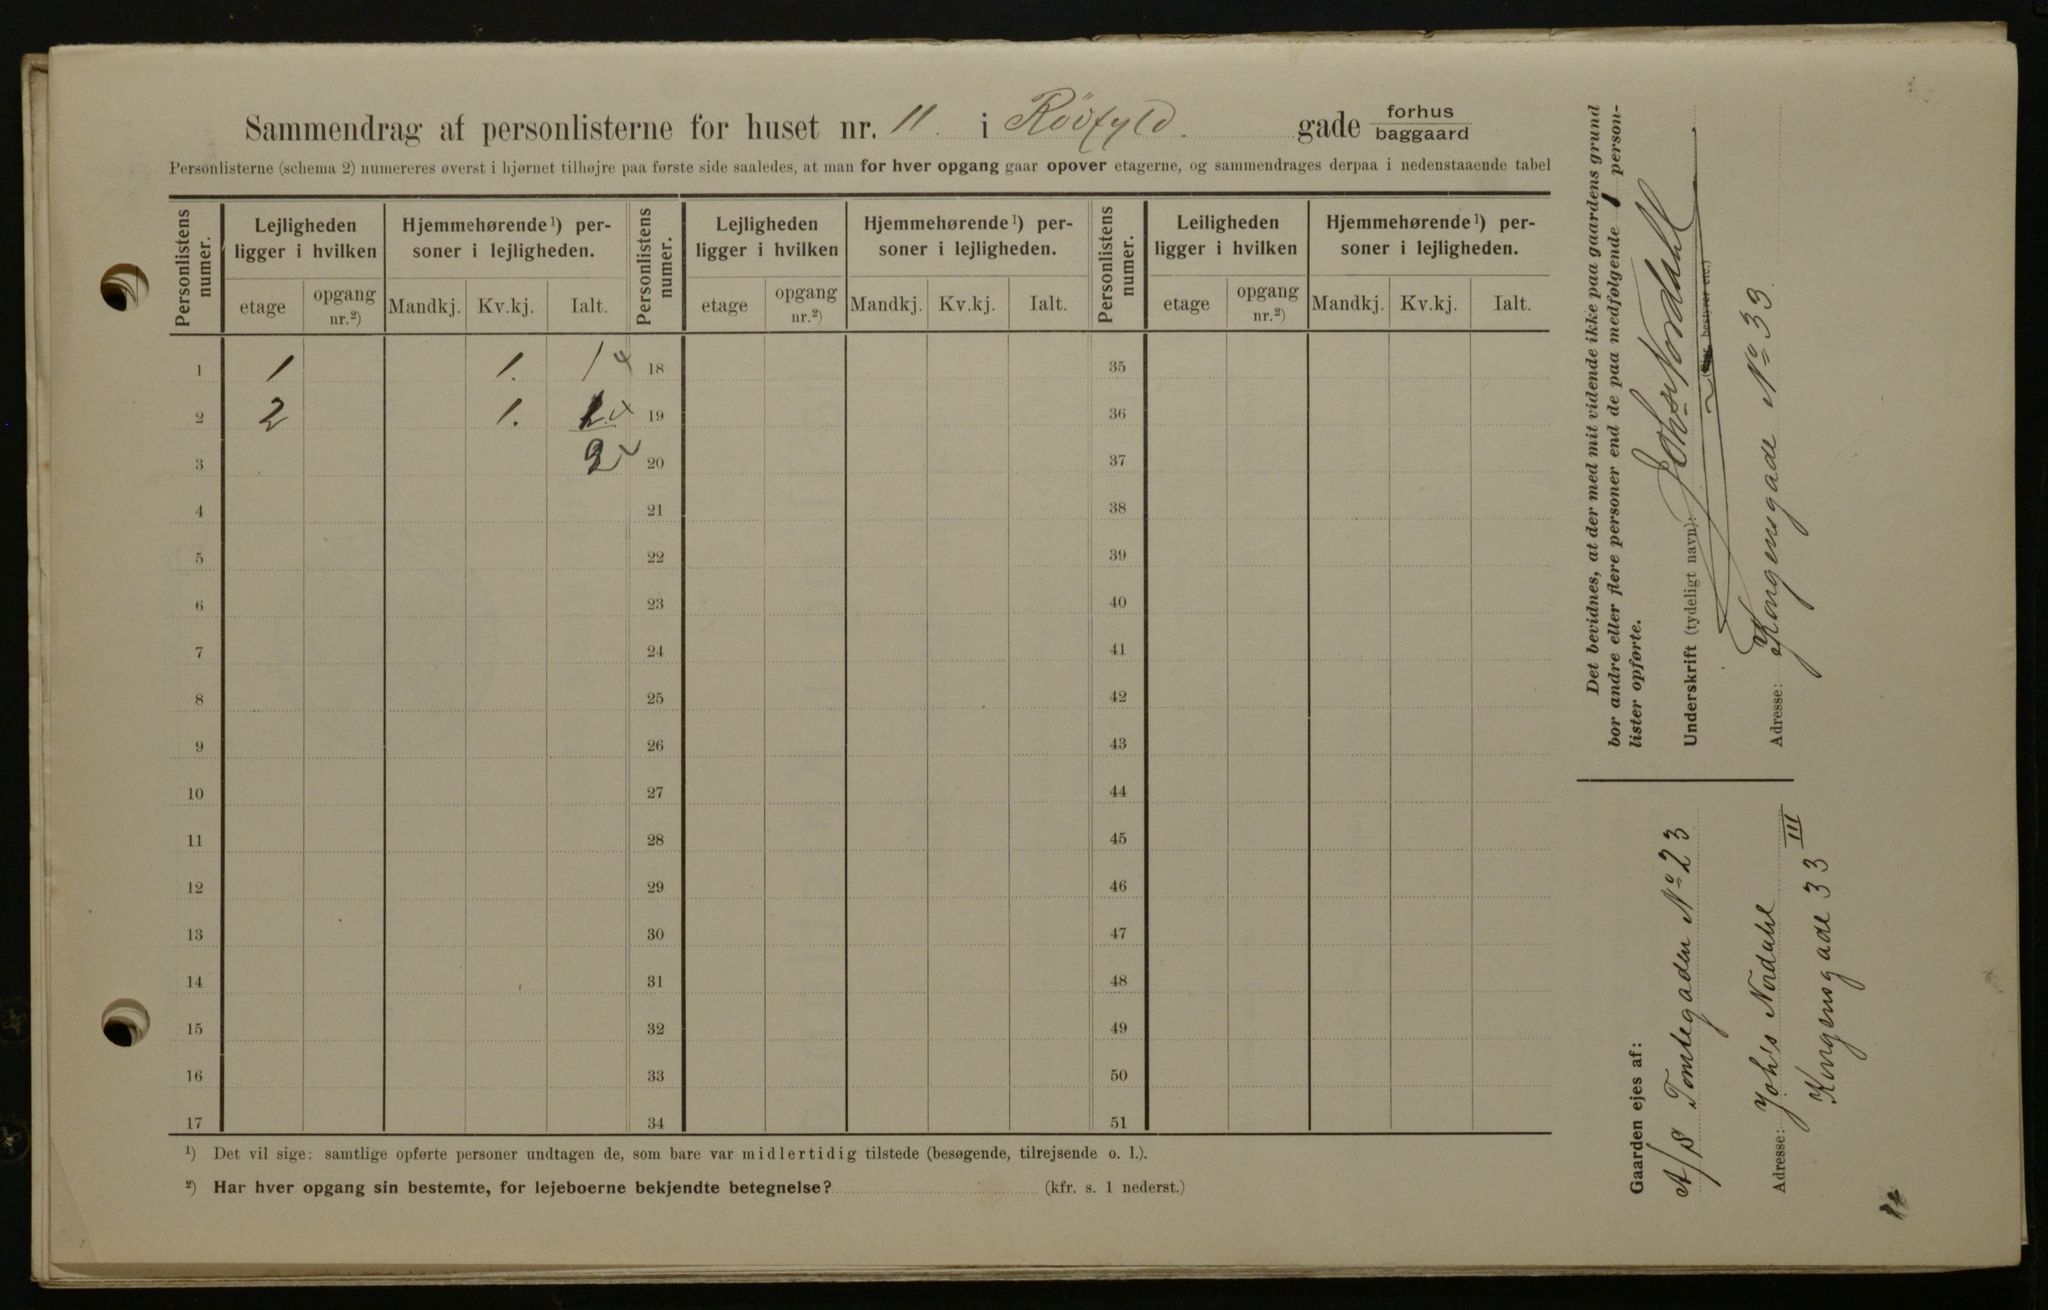 Sammendrag af personlisterne for huset nr. 11 i Röifyld gade forhus baggaard
Personlisterne (schema 2) numereres øverst i hjørnet tilhøjre paa første side saaledes, at man for hver opgang gaar opover etagerne, og sammendrages derpaa i nedenstaaende tabel
Personlistens numer. Lejligheden ligger i hvilken Hjemmehørende ¹) personer i lejligheden. Personlistens numer. Lejligheden ligger i hvilken Hjemmehørende ¹) personer i lejligheden. Personlistens numer. Leiligheden ligger i hvilken Hjemmehørende ¹) personer i lejligheden.
etage opgang nr.²) Mandkj. Kv.kj. Ialt. etage opgang nr.²) Mandkj. Kv.kj. Ialt. etage opgang nr.²) Mandkj. Kv.kj. Ialt.
1 1 1. 1 18 35
2 2 1. 1 19 36
3 2 20 37
4 21 38
5 22 39
6 23 40
7 24 41
8 25 42
9 26 43
10 27 44
11 28 45
12 29 46
13 30 47
14 31 48
15 32 49
16 33 50
17 34 51
¹) Det vil sige: samtlige opførte personer undtagen de, som bare var midlertidig tilstede (besøgende, tilrejsende o. l.).
²) Har hver opgang sin bestemte, for lejeboerne bekjendte betegnelse? (kfr. s. 1 nederst.)
Det bevidnes, at der med mit vidende ikke paa gaardens grund
bor andre eller flere personer end de paa medfølgende 1 person-
lister opførte.
Underskrift (tydeligt navn): Johs Nordahl
(eier, bestyrer etc.)
Adresse: Kongensgade No 33
Gaarden ejes af:
A/S Tomtegaden No 23
Adresse: Joh's Nordahl
Kongensgade 33 III